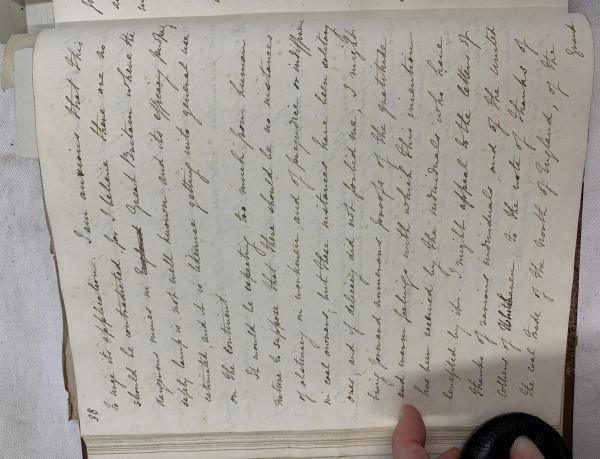 38
to urge its application. I am anxious that this
should be contradicted, for I believe there are no
dangerous mines in Great Britain where the
safety lamp is not well known and its efficacy fully
admitted, and it is likewise getting into general use
on the Continent.
It would be expecting too much from human
nature to suppose that there should be no instances
of obstinacy in workmen, and of prejudice or indifference
in coal owners, but these instances have been solitary
ones, and if delicacy did not forbid me, I might
bring forward numerous proofs of the gratitude
and warm feelings with which this invention
has been received by the individuals who have
benefited by it. I might appeal to the letters of
thanks of various individuals and of the united
colliers of Whitehaven, to the vote of thanks of
the coal trade of the North of England, of the